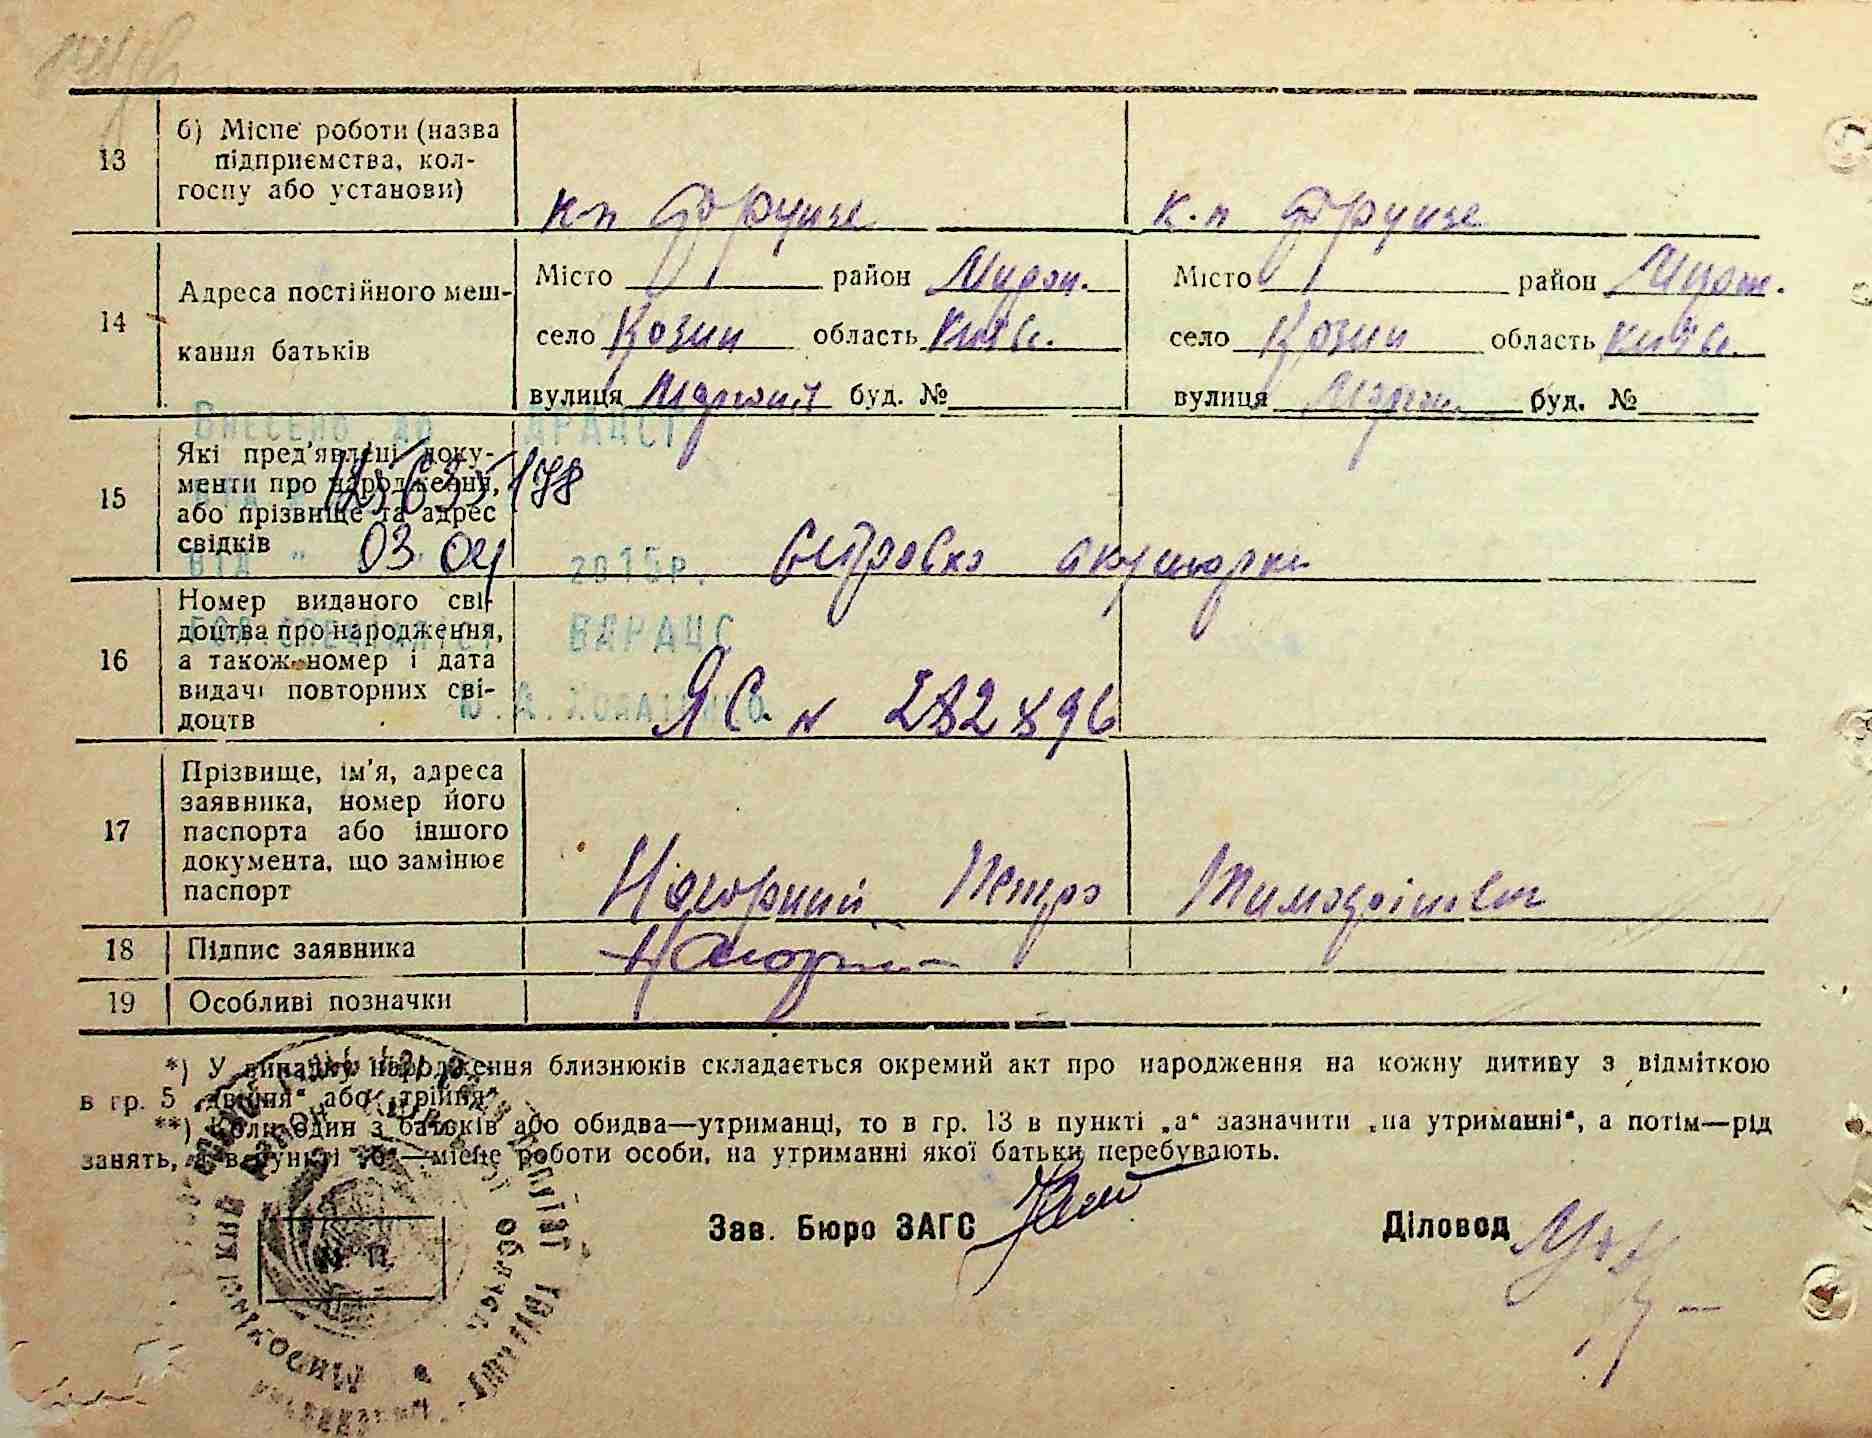 13
б) Місце роботи (назва
підприємства, кол-
госпу або установи)
к-п Фрунзе
к-п Фрунзе
14
Адреса постійного меш-
кання батьків
Місто район Мирон.
село Козин область Київ.
вулиця буд. №
Місто район Мирон.
село Козин область Київ.
вулиця буд. №
Внесено до ДРАЦСГ
15
Які пред'явлені доку-
менти про народження,
або прізвище та адрес
свідків
03 04 2015р.
акушерки
16
Номер виданого сві-
доцтва про народження,
а також номер і дата
видачі повторних сві-
доцтв
ВДРАЦС
ЯС № 282896
17
Прізвище, ім'я, адреса
заявника, номер його
паспорта або іншого
документа, що замінює
паспорт
Нагорний Петро Тимофієвич
18
Підпис заявника
Нагорн
19
Особливі позначки
*) У випадку народження близнюків складається окремий акт про народження на кожну дитину з відміткою
в гр. 5 „двійня“ або „трійня“.
**) Коли один з батьків або обидва—утриманці, то в гр. 13 в пункті „а“ зазначити „на утриманні“, а потім—рід
занять, а в пункті „б“—місце роботи особи, на утриманні якої батьки перебувають.
Зав. Бюро ЗАГС
Діловод
М. П.